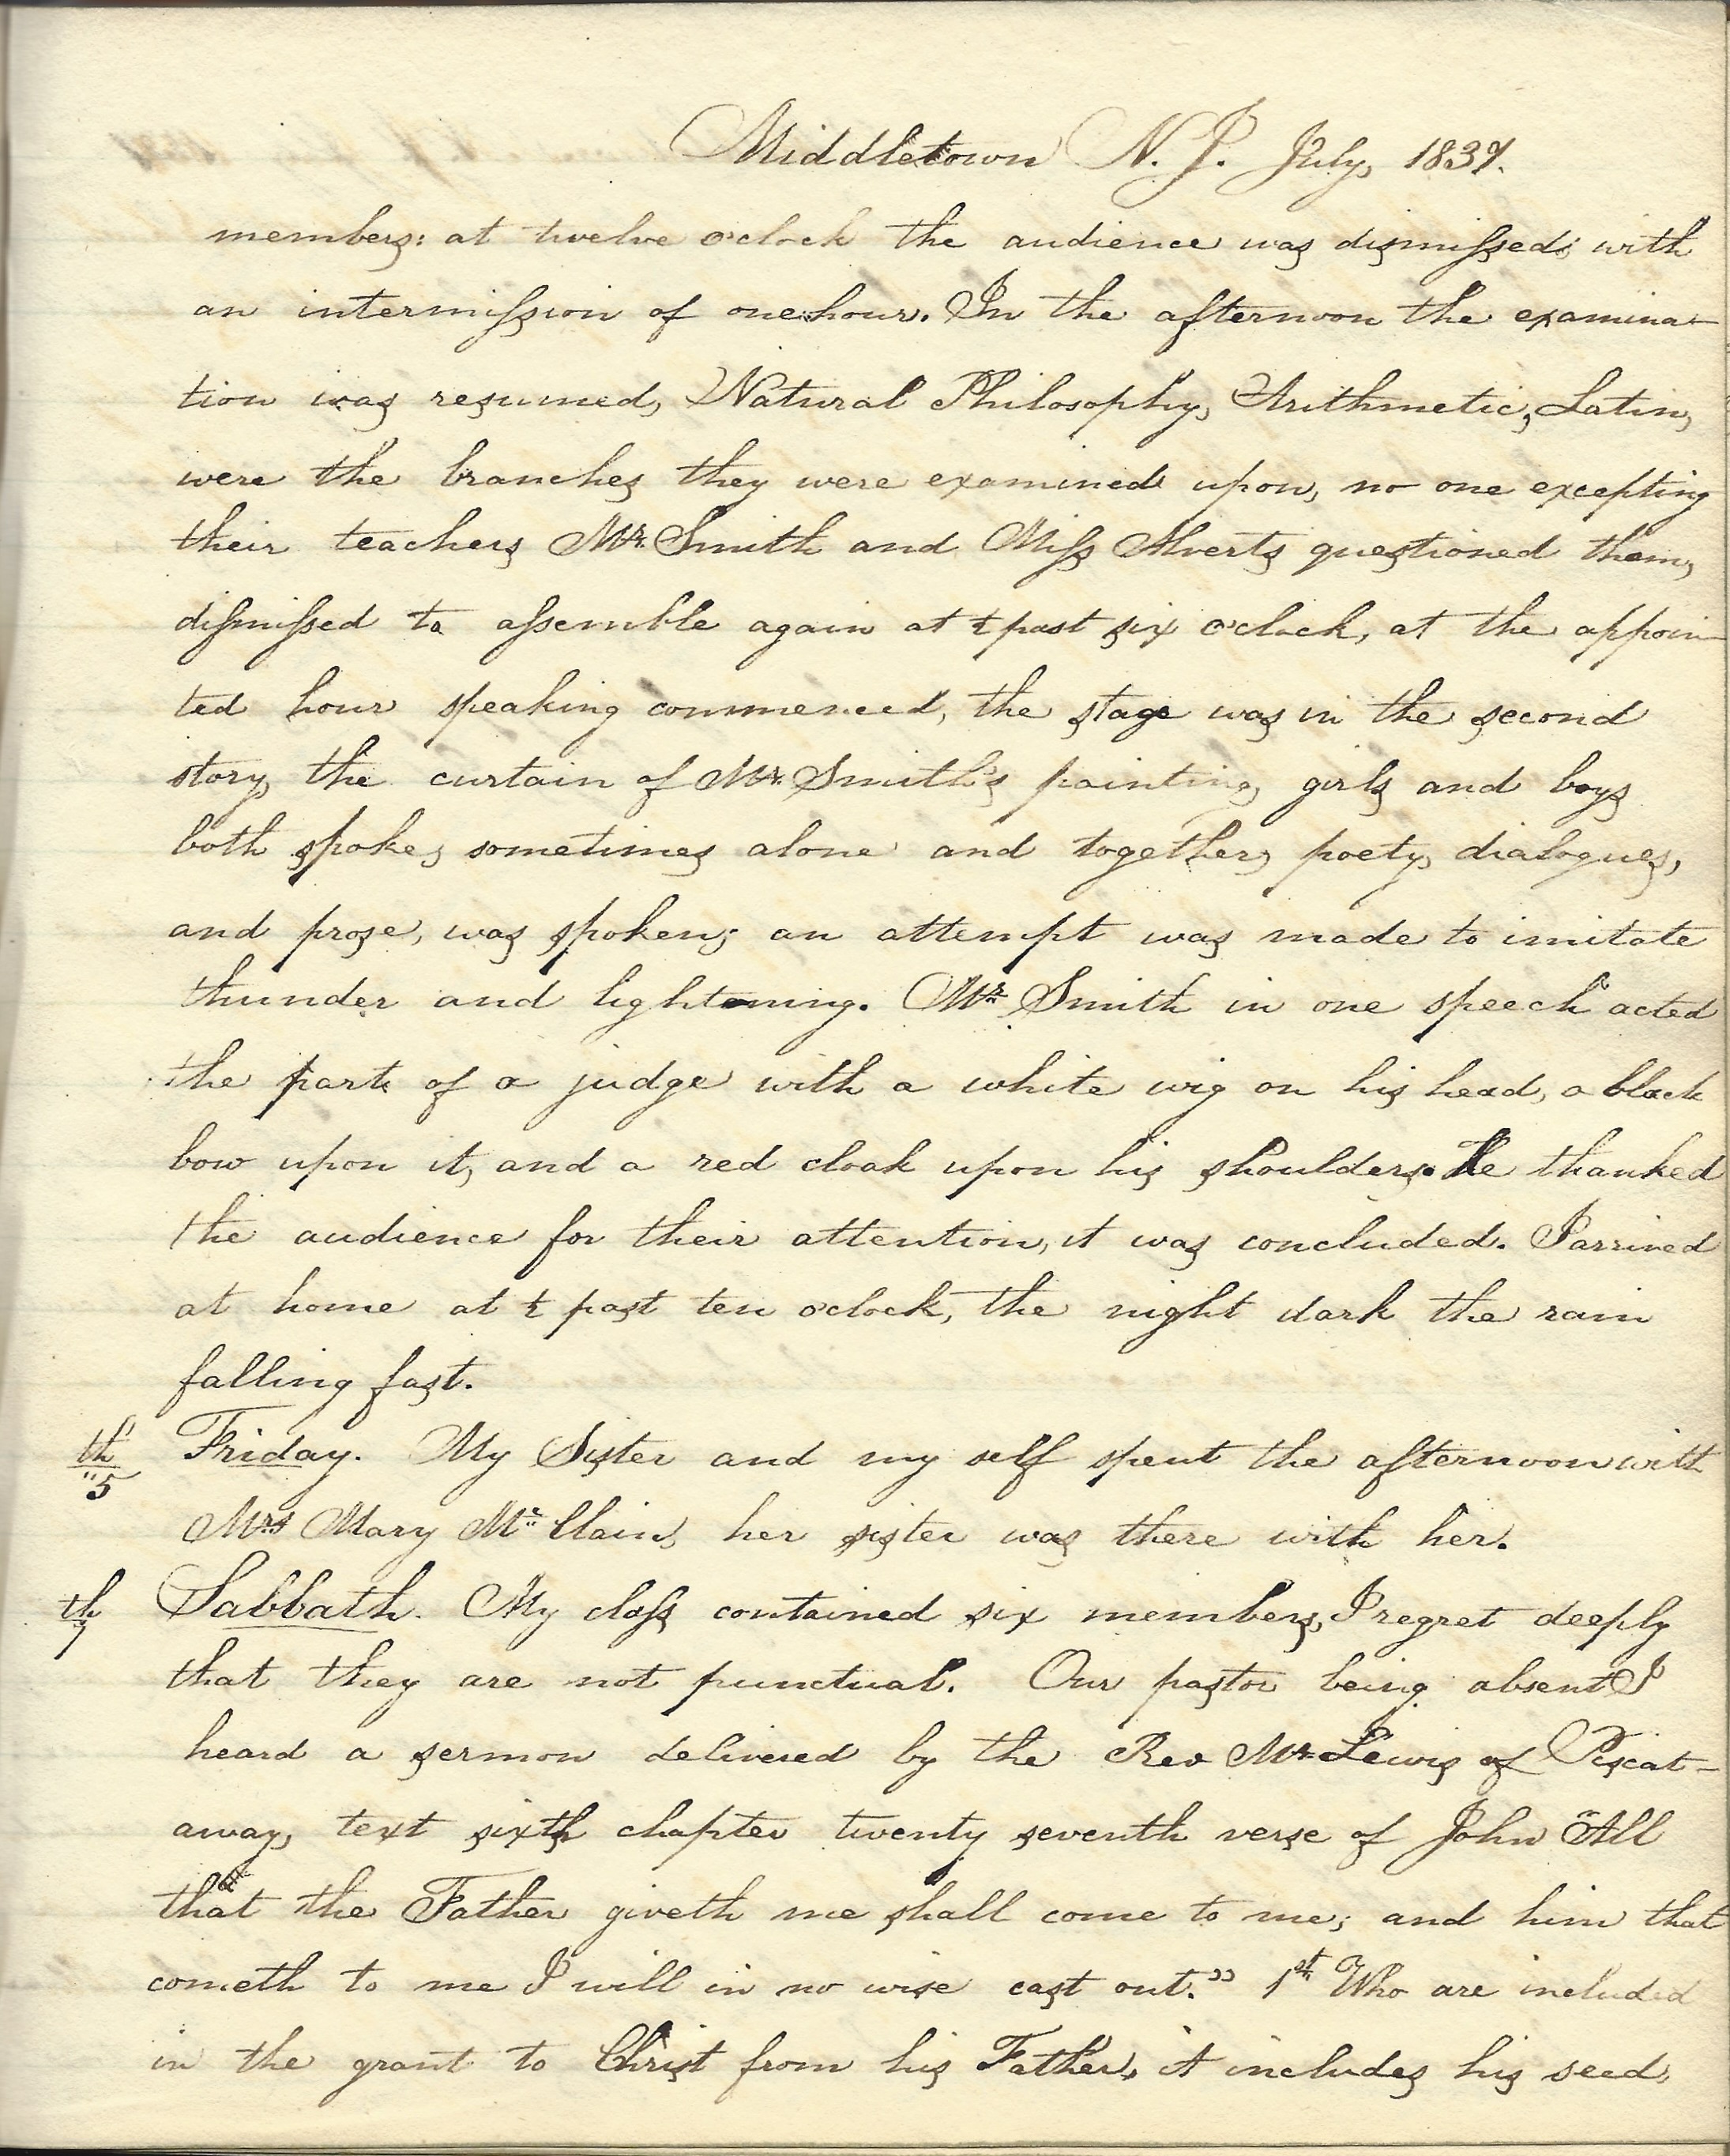 Middletown N. J. July, 1839.
members: at twelve o'clock the audience was dismissed; with
an intermission of one hour. In the afternoon the examina-
tion was resumed, Natural Philosophy, Arithmetic, Latin,
were the branches they were examined upon, no one excepting
their teachers Mr. Smith and Miss Alverts questioned them,
dismissed to assemble again at ½ past six o'clock, at the appoin-
ted hour speaking commenced, the stage was in the second
story, the curtain of Mr. Smith's painting, girls and boys
both spoke, sometimes alone and together, poety, dialogues,
and prose, was spoken; an attempt was made to imitate
thunder and lightening. Mr. Smith in one speech acted
the part of a judge with a white wig on his head, a black
bow upon it, and a red cloak upon his shoulders. He thanked
the audience for their attention, it was concluded. I arrived
at home at ½ past ten o'clock, the night dark the rain
falling fast.
th 5 Friday. My Sister and my self spent the afternoon with
Mrs Mary Mc. Clain, her sister was there with her.
th 7 Sabbath. My class contained six members, I regret deeply
that they are not punctual. Our pastor being absent I
heard a sermon delivered by the Rev Mr. Lewis of Piscat-
away, text sixth chapter twenty seventh verse of John "All
that the Father giveth me shall come to me; and him that
cometh to me I will in no wise cast out." 1st Who are included
in the grant to Christ from his Father, it includes his seed,